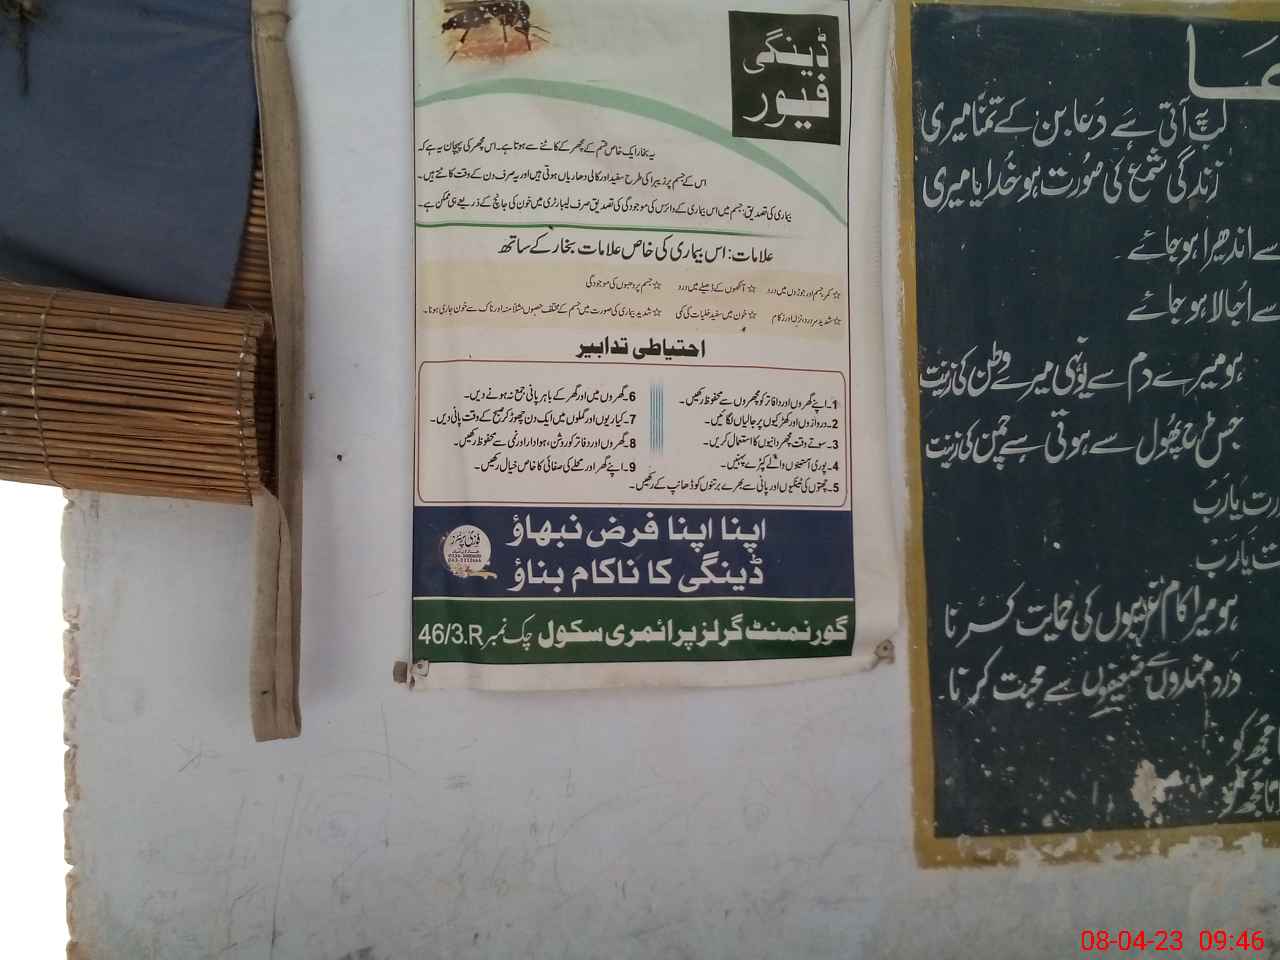 ڈینگی
فیور
یہ بخار ایک خاص قسم کے مچھر کے کاٹنے سے ہوتا ہے۔ اس مچھر کی پہچان یہ ہے کہ
اس کے جسم پر زیبرا کی طرح سفید اور کالی دھاریاں ہوتی ہیں اور یہ صرف دن کے وقت کاٹتے ہیں۔
بیماری کی تصدیق: جسم میں اس بیماری کے وائرس کی موجودگی کی تصدیق صرف لیبارٹری میں خون کی جانچ کے ذریعے ہی ممکن ہے۔
علامات: اس بیماری کی خاص علامات بخار کے ساتھ
☆ کمر جسم اور جوڑوں میں درد ☆ آنکھوں کے ڈھیلے میں درد ☆ جسم پر دھبوں کی موجودگی
☆ شدید سر درد، نزلہ اور زکام ☆ خون میں سفید خلیات کی کمی ☆ شدید بیماری کی صورت میں جسم کے مختلف حصوں مثلاً منہ اور ناک سے خون جاری ہونا۔
احتیاطی تدابیر
1۔ اپنے گھروں اور دفاتر کو مچھروں سے محفوظ رکھیں۔
2۔ دروازوں اور کھڑکیوں پر جالیاں لگائیں۔
3۔ سوتے وقت مچھر دانیوں کا استعمال کریں۔
4۔ پوری آستینوں والے کپڑے پہنیں۔
5۔ چھتوں کی ٹینکیوں اور پانی سے بھرے برتنوں کو ڈھانپ کے رکھیں۔
6۔ گھروں میں اور گھر کے باہر پانی جمع نہ ہونے دیں۔
7۔ کیاریوں اور گملوں میں ایک دن چھوڑ کر صبح کے وقت پانی دیں۔
8۔ گھروں اور دفاتر کو روشن، ہوادار اور نمی سے محفوظ رکھیں۔
9۔ اپنے گھر اور محلے کی صفائی کا خاص خیال رکھیں۔
اپنا اپنا فرض نبھاؤ
ڈینگی کا ناکام بناؤ
گورنمنٹ گرلز پرائمری سکول چک نمبر 46/3.R
لب پہ آتی ہے دُعا بن کے تمنّا میری
زندگی شمع کی صُورت ہو خُدایا میری
سے اندھیرا ہو جائے
سے اُجالا ہو جائے
ہو میرے دم سے یُونہی میرے وطن کی زینت
جس طرح پھُول سے ہوتی ہے چمن کی زینت
رت یا رَبّ
ت یا رَبّ
ہو میرا کام غریبوں کی حمایت کرنا
درد مندوں سے ضعیفوں سے محبت کرنا۔
مجھ کو
مجھ کو
08-04-23 09:46